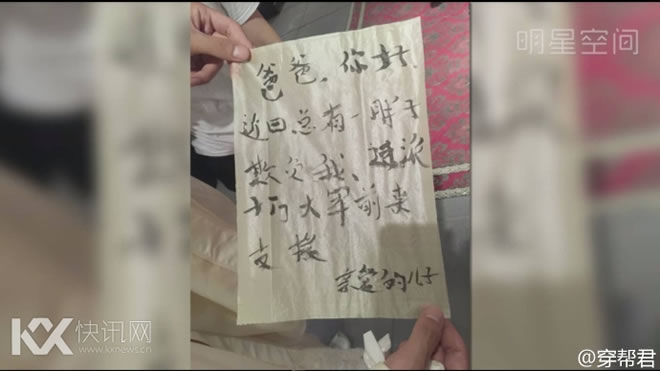 明星空间
爸爸,你好!
近日总有一胖子
欺负我、派
十万大军前来
支援
亲爱的儿子
KX 快讯网
www.kxnews.cn
@穿帮君